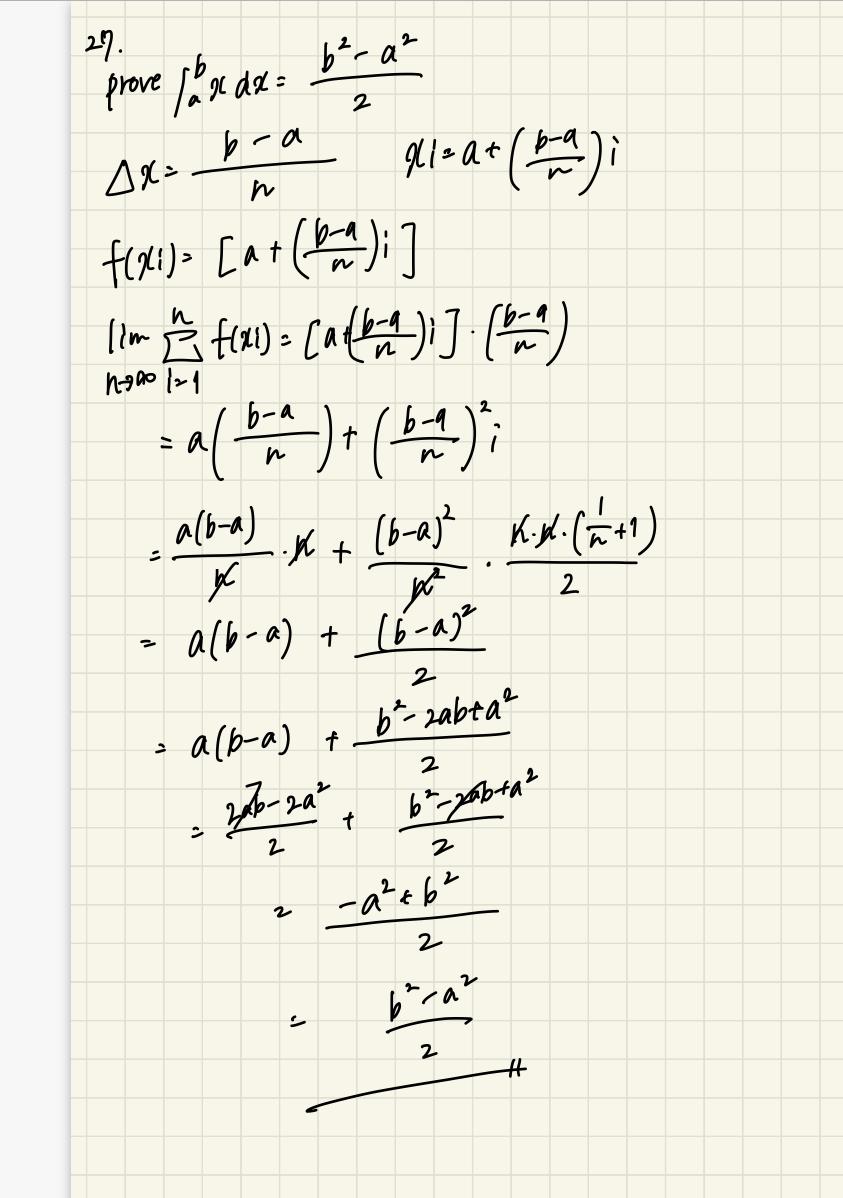 27.
prove ∫_a^b x dx = (b² - a²)/2
Δx = (b - a)/n    xi = a + ((b-a)/n) i
f(xi) = [a + ((b-a)/n) i]
lim_{n→∞} Σ_{i=1}^{n} f(xi) = [a + ((b-a)/n) i] · ((b-a)/n)
= a((b-a)/n) + ((b-a)/n)² i
= a(b-a)/n · n + (b-a)²/n² · n·n·(1/n + 1)/2
= a(b-a) + (b-a)²/2
= a(b-a) + (b² - 2ab + a²)/2
= (2ab - 2a²)/2 + (b² - 2ab + a²)/2
= (-a² + b²)/2
= (b² - a²)/2